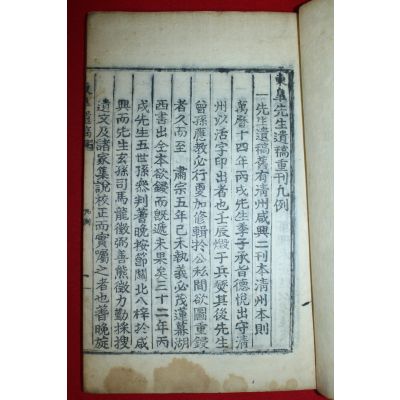 東皐先生遺稿重刊凡例
一先生遺稿舊有清州咸興二刊本清州本則
萬曆十四年丙戌先生季子承旨德悅出守清
州以活字印出者也壬辰燬于兵燹其後先生
曾孫應教必行更加修輯於公私間欲圖重鋟
者久而至 肅宗五年己未執義必茂蓮幕湖
西書出全本欲鋟而旣遞未果矣三十二年丙
戌先生五世孫叅判著晚按節關北入梓於咸
興而先生玄孫司馬龍徵弼善熊徵力勤採搜
遺文及諸家集說校正而實囑之者也著晚旋
東皐遺稿
凡例
一